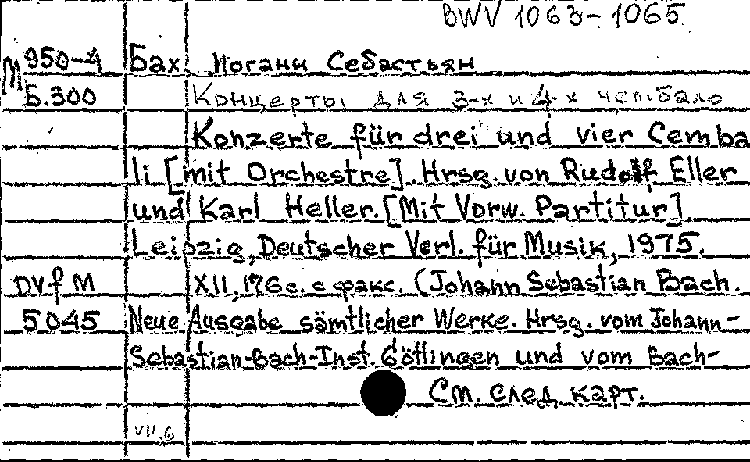 BWV 1063-1065
М 950-4 Бах, Иоганн Себастьян
Б.300 Концерты для 3-х и 4-х чембало
Konzerte für drei und vier Cemba
li [mit Orchestre]. Hrsg. von Rudolf Eller
und Karl Heller. [Mit Vorw. Partitur].
Leipzig, Deutscher Verl. für Musik, 1975.
DVfM XII, 176 с. с факс. (Johann Sebastian Bach.
5045 Neue Ausgabe sämtlicher Werke. Hrsg. vom Johann-
Sebastian-Bach-Inst. Göttingen und vom Bach-
См. след. карт.
VII,6